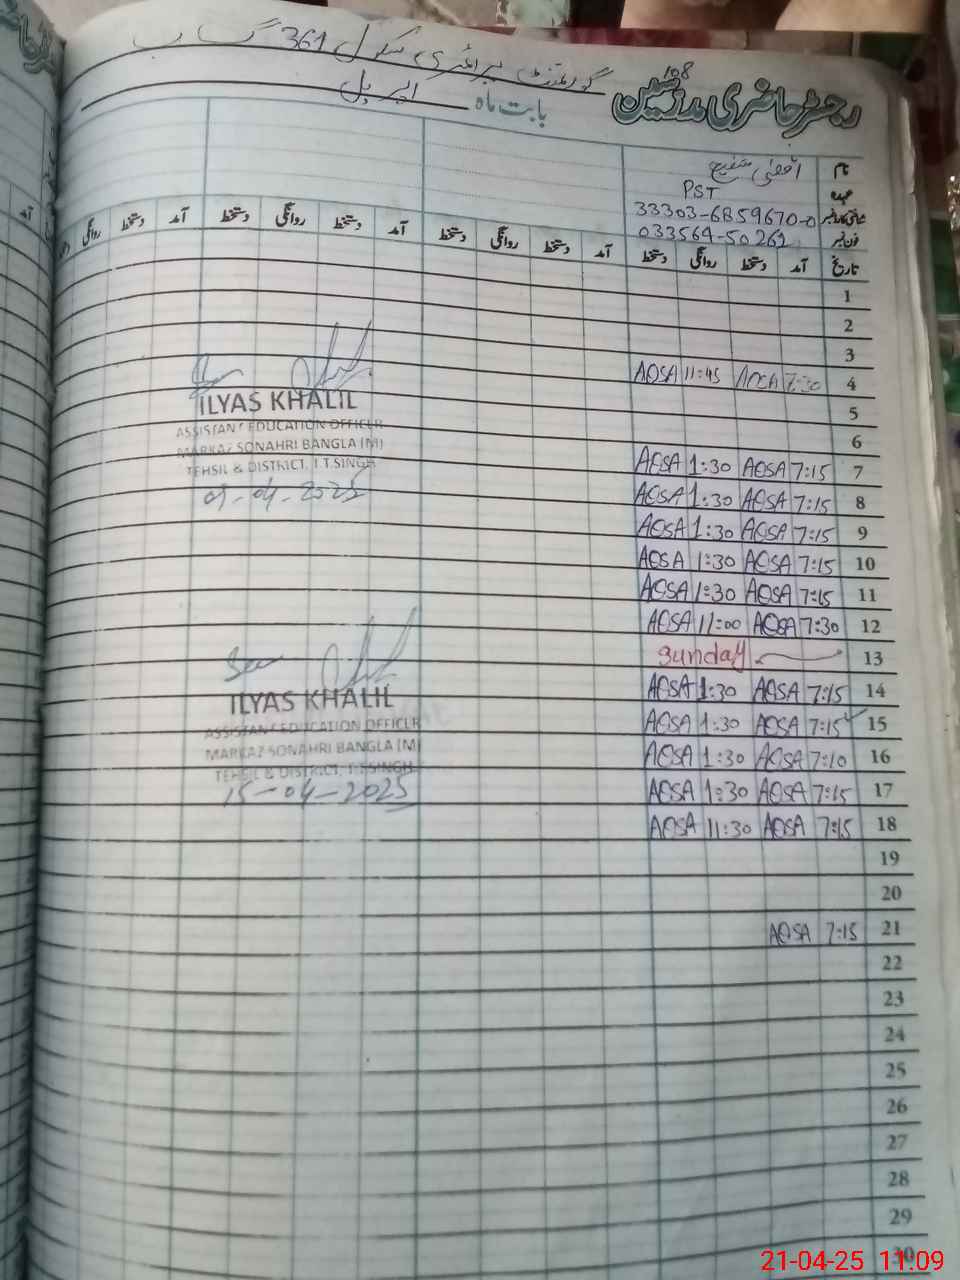 گورنمنٹ پرائمری سکول 361 گ ب
108
رجسٹر حاضری مدرسین
بابت ماہ اپریل
نام اقصیٰ
عہدہ PST
شناختی کارڈ نمبر 33303-6859670-0
فون نمبر 033564-50262
تاریخ آمد دستخط روانگی دستخط آمد دستخط روانگی دستخط آمد دستخط روانگی دستخط آمد دستخط روانگی
1
2
3
AQSA 11:45 AQSA 7:30 4
5
6
AQSA 1:30 AQSA 7:15 7
AQSA 1:30 AQSA 7:15 8
AQSA 1:30 AQSA 7:15 9
AQSA 1:30 AQSA 7:15 10
AQSA 1:30 AQSA 7:15 11
AQSA 11:00 AQSA 7:30 12
Sunday 13
AQSA 1:30 AQSA 7:15 14
AQSA 1:30 AQSA 7:15 15
AQSA 1:30 AQSA 7:10 16
AQSA 1:30 AQSA 7:15 17
AQSA 11:30 AQSA 7:15 18
19
20
AQSA 7:15 21
22
23
24
25
26
27
28
29
30
ILYAS KHALIL
ASSISTANT EDUCATION OFFICER
MARKAZ SONAHRI BANGLA (M)
TEHSIL & DISTRICT, T.T.SINGH
09-04-2025
Seen
ILYAS KHALIL
ASSISTANT EDUCATION OFFICER
MARKAZ SONAHRI BANGLA (M)
TEHSIL & DISTRICT, T.T.SINGH
15-04-2025
21-04-25 11:09